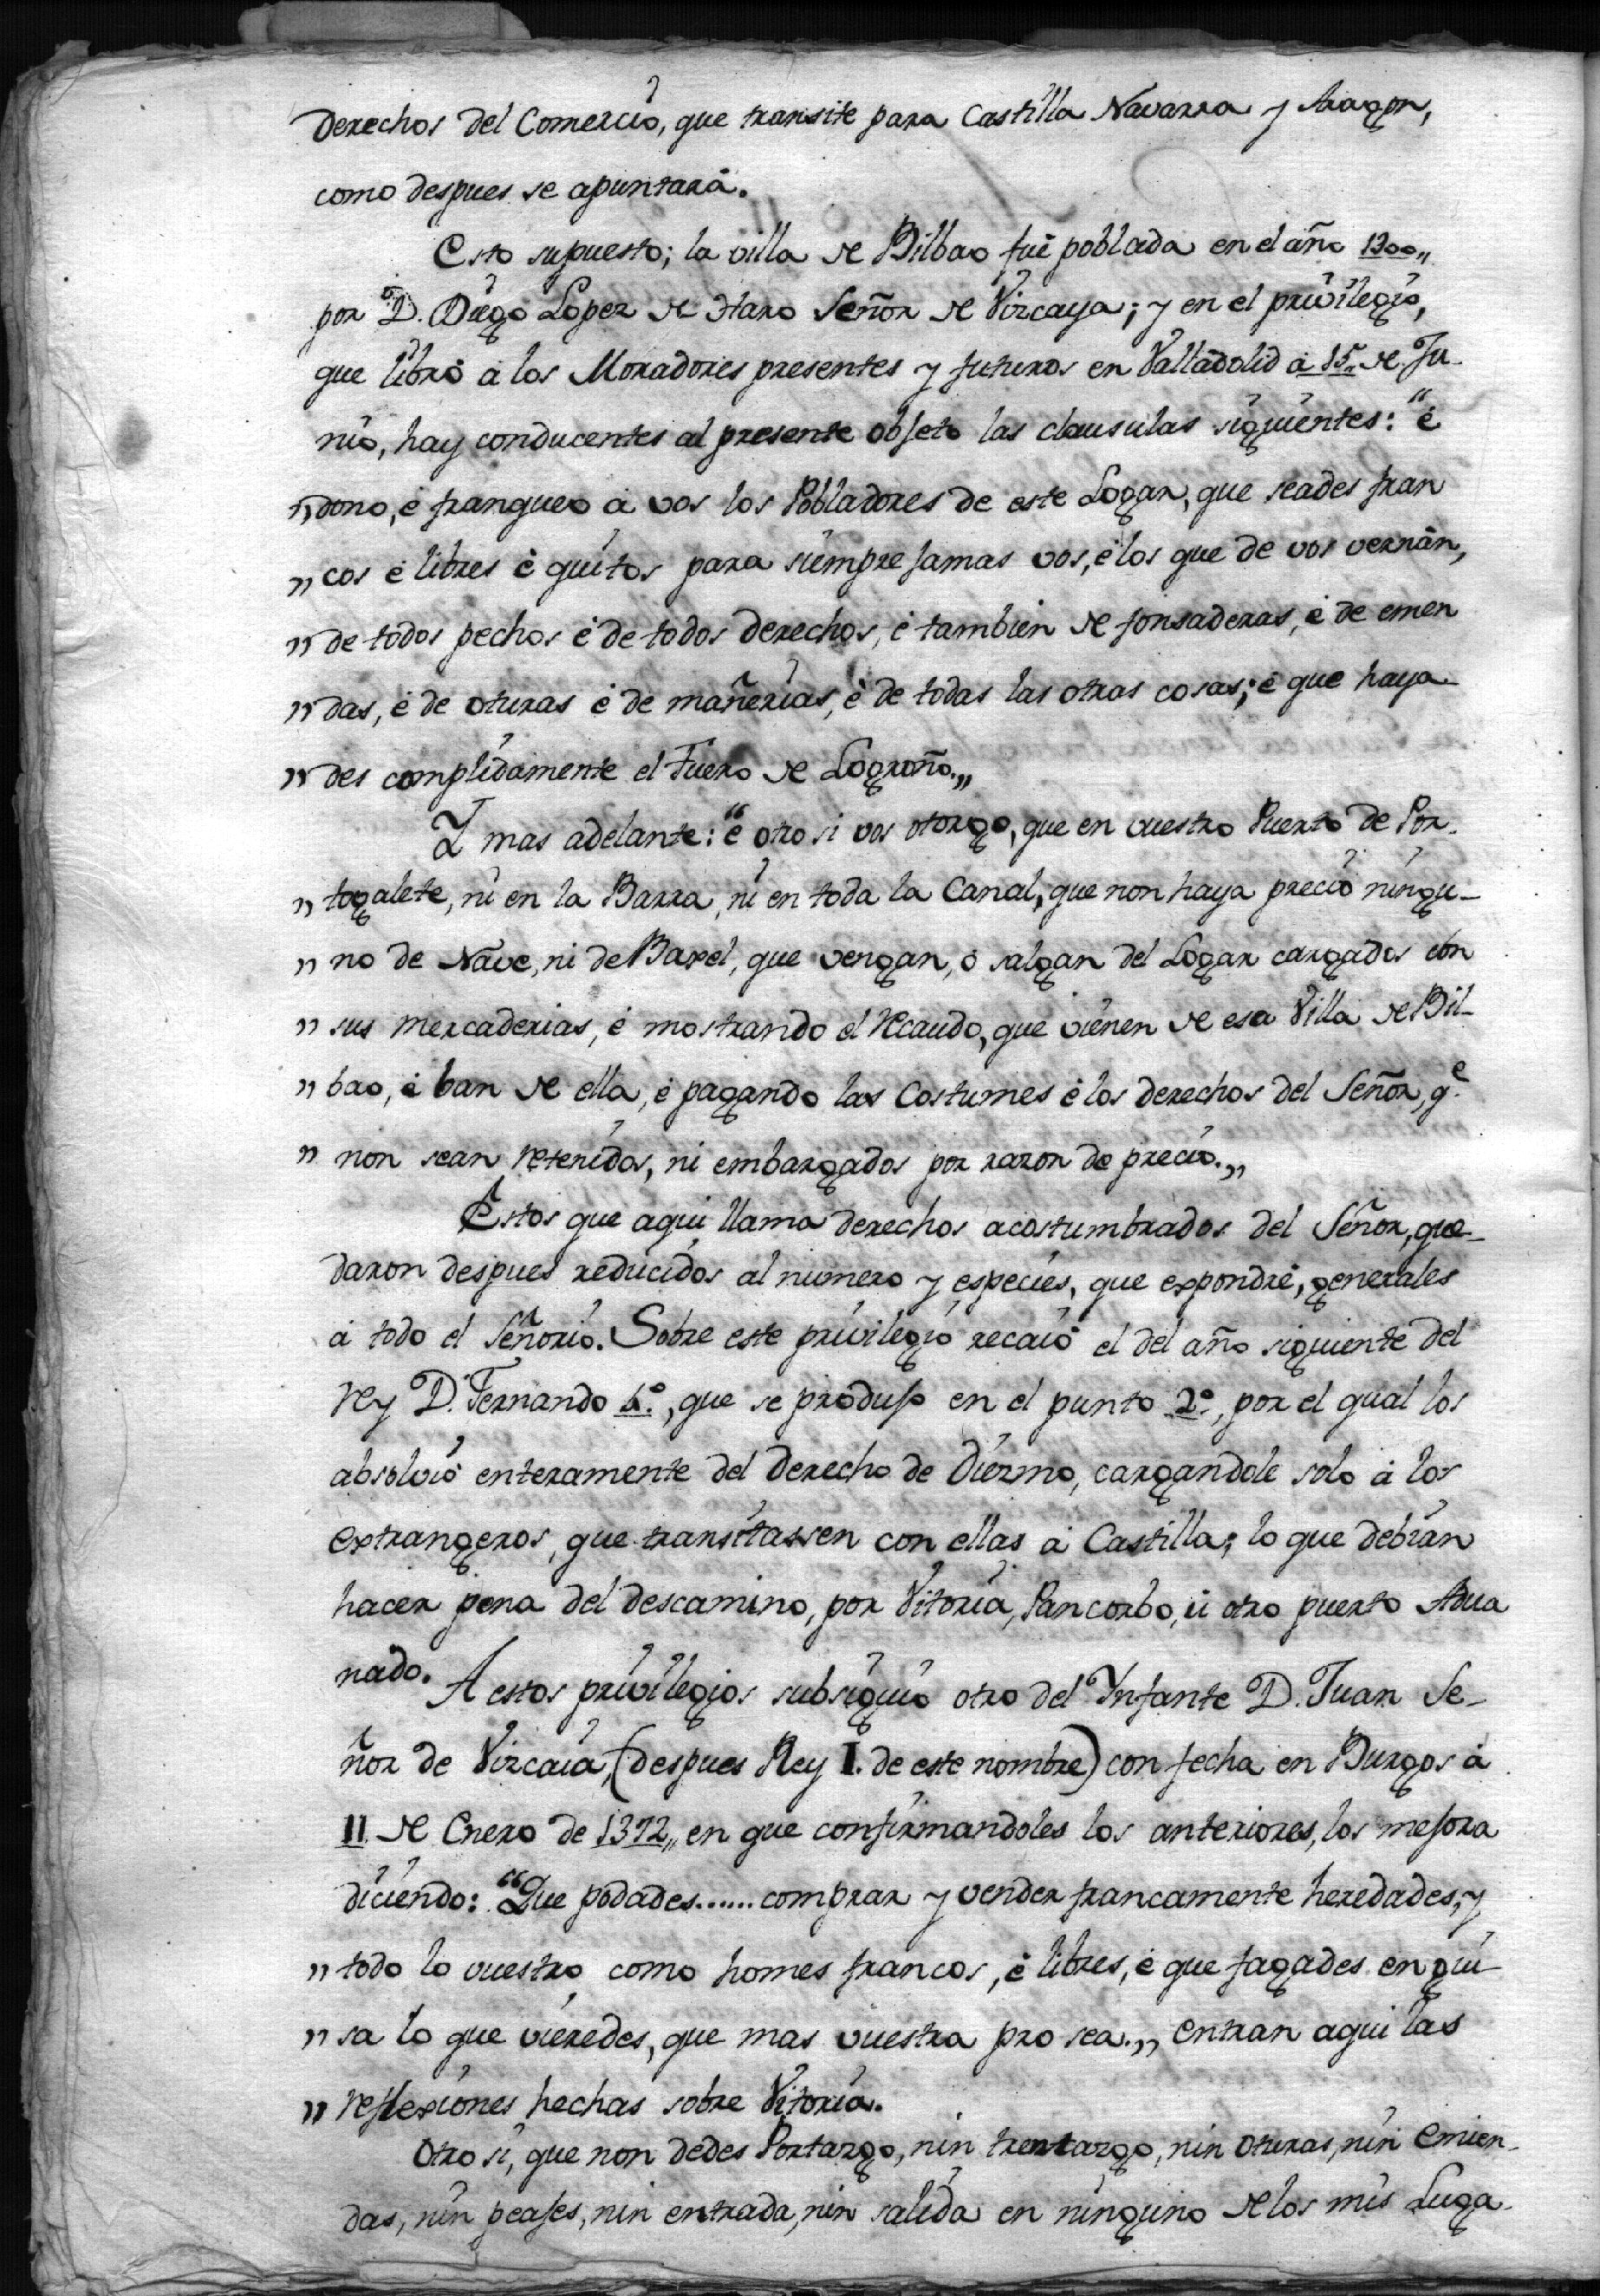 Derechos del Comercio, que transite para Castilla Navarra y Aragon,
como despues se apuntará.
Esto supuesto; la villa de Bilbao fué poblada en el año 1300„
por D. Diego Lopez de Haro Señor de Vizcaya; y en el privilegio,
que libró á los Moradores presentes y futuros en Valladolid á 15„ de Ju-
nio, hay conducentes al presente objeto las clausulas siguientes: “é
„dono, é franqueo á vos los Pobladores de este Logar, que seades fran
„ cos é libres é quitos para siempre jamas vos, é los que de vos vernán,
„ de todos pechos é de todos derechos, é tambien de fonsaderas, é de emen
„ das, é de oturas é de mañerias, é de todas las otras cosas; é que haya-
„ des complidamente el Fuero de Logroño.„
Y mas adelante: “é otro si vos otorgo, que en vuestro Puerto de Por-
„ togalete, ni en la Barra, ni en toda la Canal, que non haya precio ningu-
„ no de Nave, ni de Baxel, que vengan, ó salgan del Logar cargados con
„ sus mercaderias, é mostrando el recaudo, que vienen de esa Villa de Bil-
„ bao, é ban de ella, é pagando las Costumes é los derechos del Señor, q.e
„ non sean retenidos, ni embargados por razon de precio.„
Estos que aqui llama derechos acostumbrados del Señor, que-
daron despues reducidos al numero y especies, que expondré, generales
á todo el Señorio. Sobre este privilegio recaió el del año siguiente del
Rey D. Fernando 4.º, que se produjo en el punto 2.º, por el qual los
absolvió enteramente del derecho de Diezmo, cargandole solo á los
extrangeros, que transitassen con ellas á Castilla; lo que debian
hacer pena del descamino, por Vitoria, Pancorbo, ú otro puerto Adua
nado. A estos privilegios subsiguió otro del Infante D. Juan Se-
ñor de Vizcaia, (despues Rey I. de este nombre) con fecha en Burgos á
11. de Enero de 1372„ en que confirmandoles los anteriores, los mejora
diciendo: “Que podades...... comprar y vender francamente heredades, y
„ todo lo vuestro como homes francos, é libres, é que fagades en gui-
„ sa lo que vieredes, que mas vuestra pro sea.„ Entran aqui las
„ reflexiones hechas sobre Vitoria.
Otro si, que non dedes Portazgo, nin treintazgo, nin oturas, nin Emien-
das, nin peajes, nin entrada, nin salida en ninguno de los mis Luga-